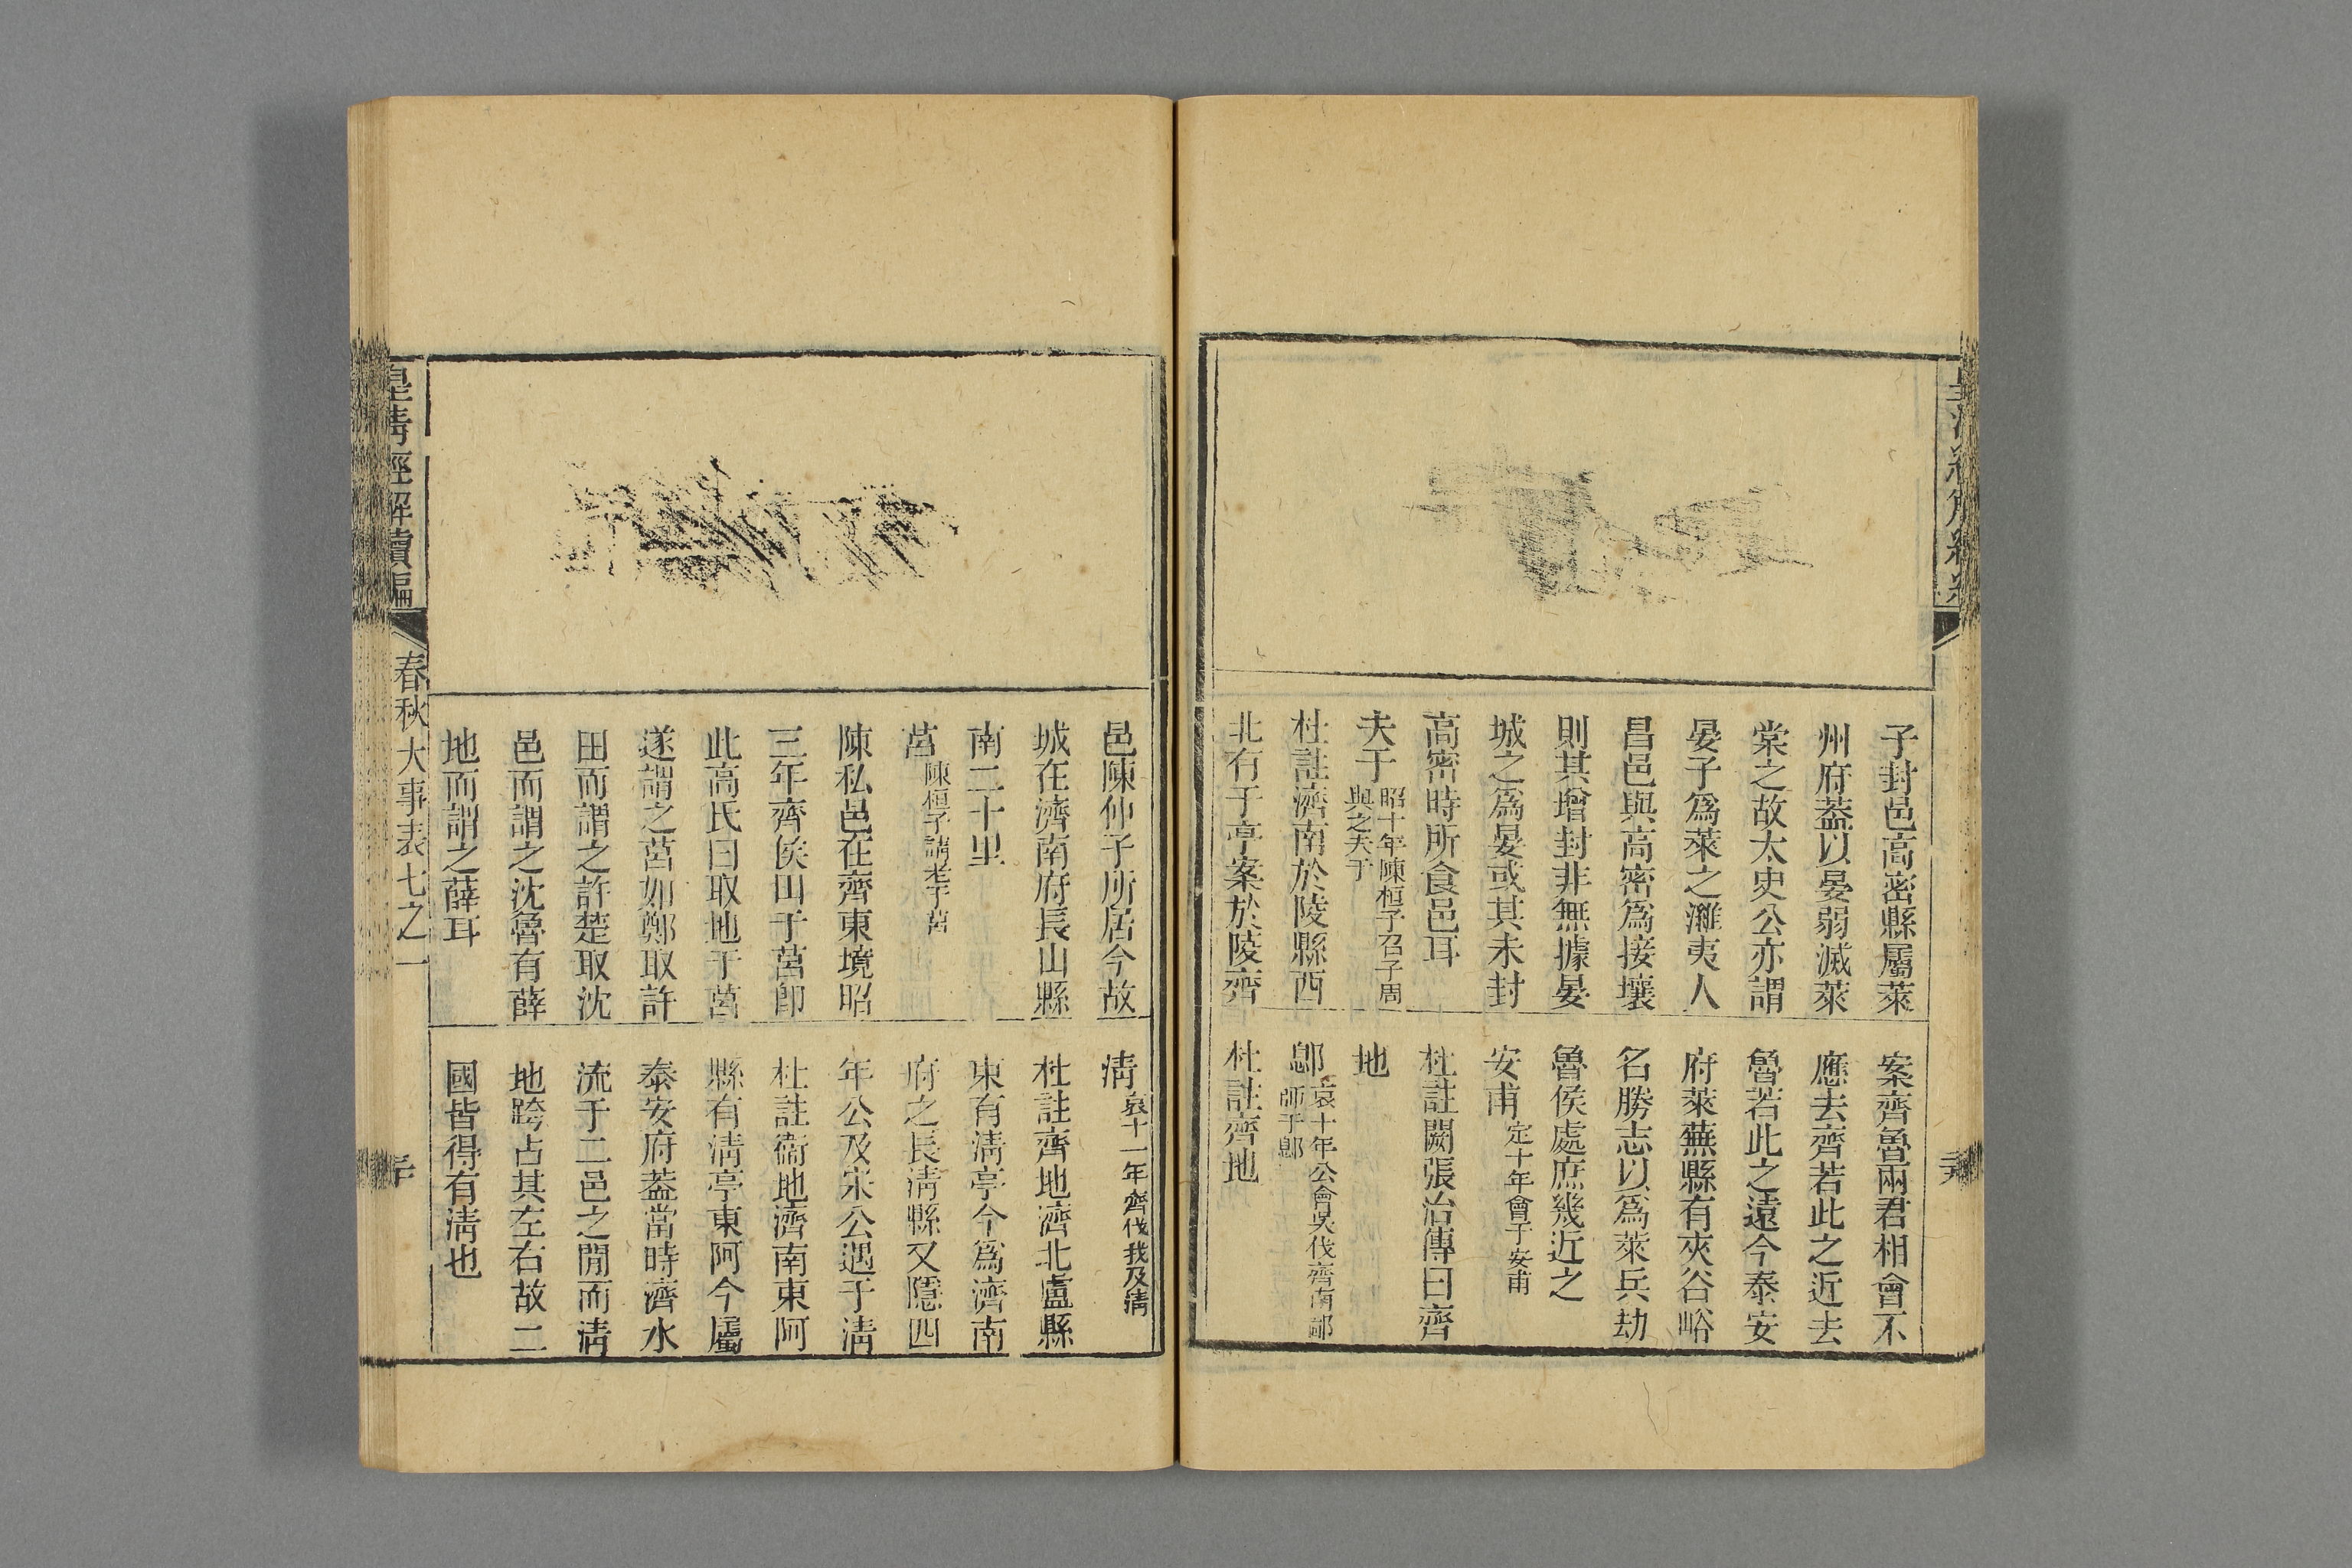 子封邑高密縣屬萊
州府葢以晏弱滅萊
棠之故太史公亦謂
晏子爲萊之濰夷人
昌邑與高密爲接壤
則其增封非無據晏
城之爲晏或其未封
高密時所食邑耳
夫于昭十年陳桓子召子周
與之夫于
杜註濟南於陵縣西
北有于亭案於陵齊
案齊魯兩君相會不
應去齊若此之近去
魯若此之遠今泰安
府萊蕪縣有夾谷峪
名勝志以爲萊兵劫
魯侯處庶幾近之
安甫定十年會于安甫
杜註闕張洽傳曰齊
地
郎哀十年公會吳伐齊南鄙
師于郎
杜註齊地
邑陳仲子所居今故
城在濟南府長山縣
南二十里
莒陳桓子請老于莒
陳私邑在齊東境昭
三年齊侯田于莒卽
此高氏曰取地于莒
遂謂之莒如鄭取許
田而謂之許楚取沈
邑而謂之沈魯有薛
地而謂之薛耳
淸哀十一年齊伐我及淸
杜註齊地濟北盧縣
東有淸亭今爲濟南
府之長淸縣又隱四
年公及宋公遇于淸
杜註衞地濟南東阿
縣有淸亭東阿今屬
泰安府葢當時濟水
流于二邑之閒而淸
地跨占其左右故二
國皆得有淸也
皇淸經解續編
春秋大事表七之一